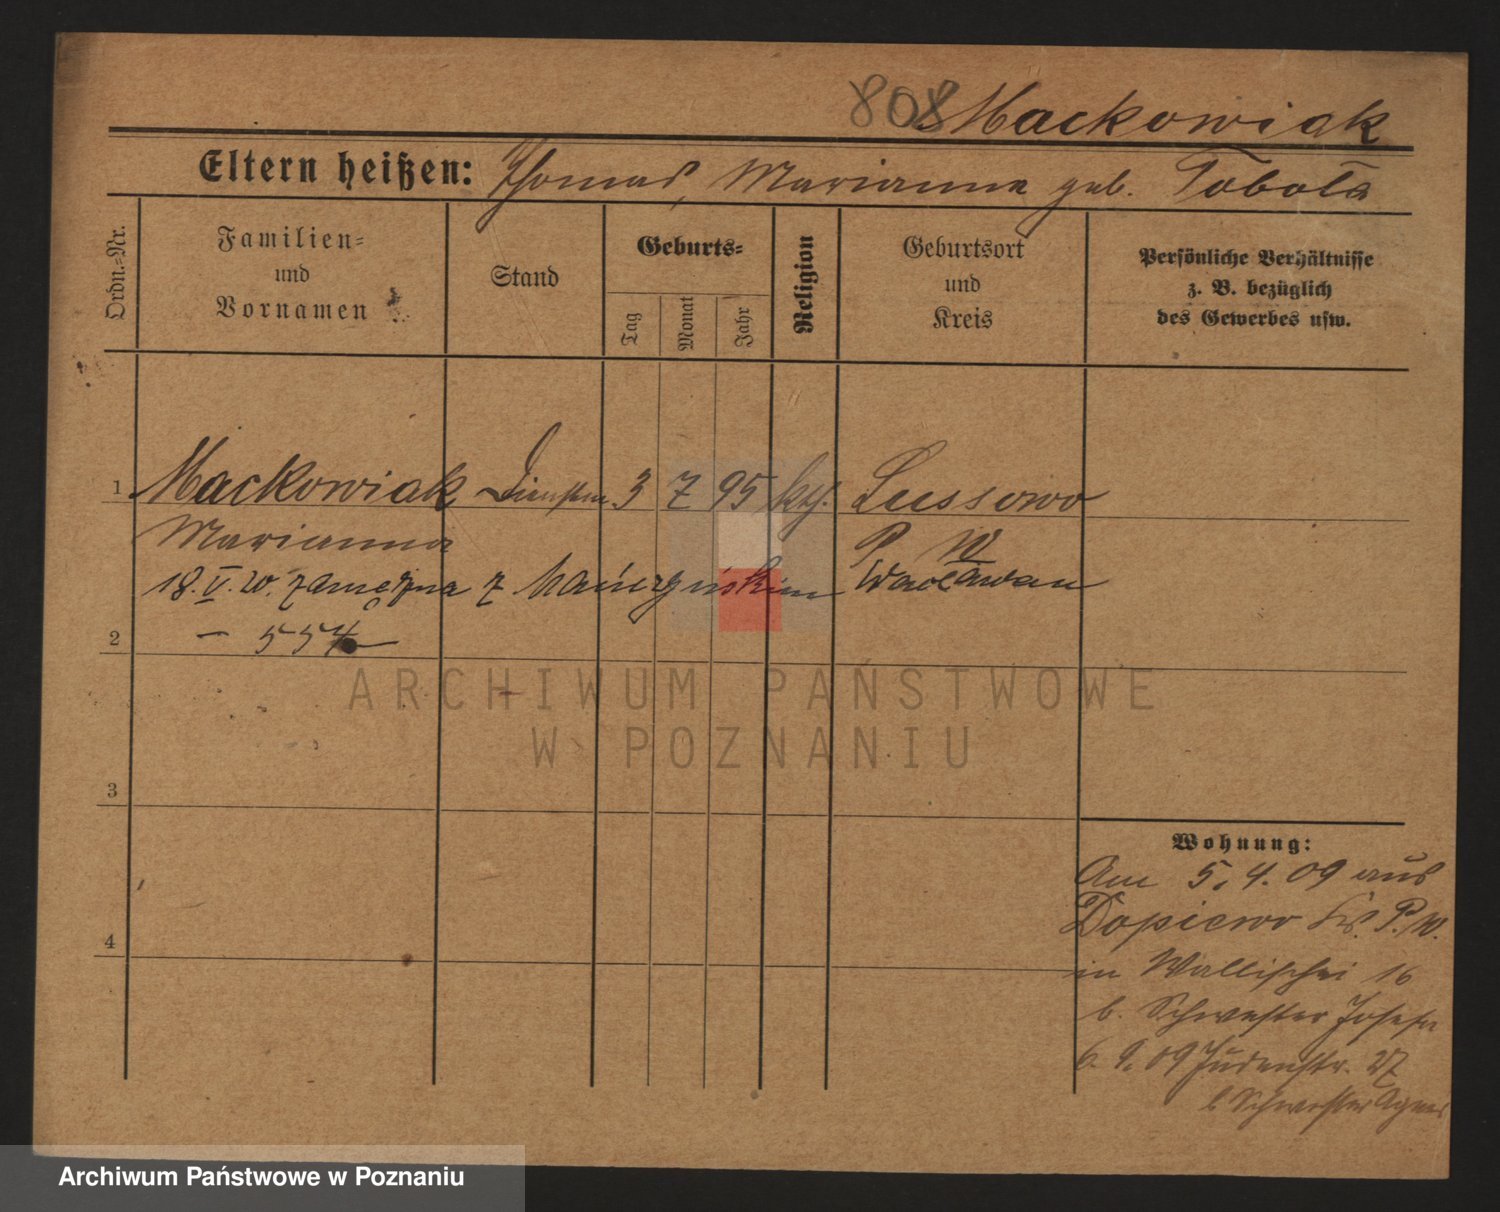 808 Mackowiak
Eltern heißen: Thomas, Marianna geb. Tobola
Ordn.-Nr.
Familien-
und
Vornamen
Stand
Geburts-
Tag
Monat
Jahr
Religion
Geburtsort
und
Kreis
Persönliche Verhältnisse
z. B. bezüglich
des Gewerbes usw.
1 Mackowiak 3 7 95 kth. Lussowo
Marianna P. W
18.V.20. zamężna z
Wacławem
2 – 554
3
4
Wohnung:
Am 5.4.09 aus
Dopiewo Krs. P. W.
in Wallischei 16
b. Schwester Josefa
6.9.09 Judenstr. 27
b Schwester Agnes
ARCHIWUM PAŃSTWOWE
W POZNANIU
Archiwum Państwowe w Poznaniu